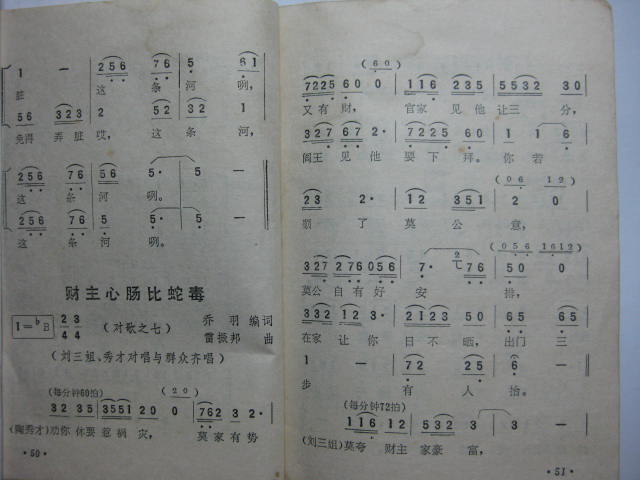 脏 这 条 河 咧,
免得 弄脏 哎, 这 条 河,
这 条 河 咧。
这 条 河 咧。
财主心肠比蛇毒
1=♭B 2/4 3/4 (对歌之七) 乔 羽 编词
雷振邦 曲
(刘三姐、秀才对唱与群众齐唱)
(每分钟60拍) (2 0)
3 2 3 5 3 5 5 1 2 0 0 7 6 2 3 2 ·
(陶秀才)劝你 休要 惹 祸 灾, 莫家 有 势
·50·
(6 0)
7 2 2 5 6 0 0 1 1 6 2 3 5 5 5 3 2 3 0
又有 财, 官家 见 他 让三 分,
3 2 7 6 7 2 · 7 2 2 5 6 0 1 1 6
阎王 见 他 要 下 拜。 你 若
(0 6 1 2)
2 3 2 · 1 2 3 5 1 2 0
顺 了 莫 公 意,
(0 5 6 1 6 1 2)
3 2 7 2 7 6 0 5 6 7 · 7 6 5 0 0
莫公 自 有 好 安 排,
3 3 2 1 2 3 · 0 5 2 0 6 5 6 5
在家 让 你 日 不 晒, 出门 三
5 — 7 2 2 5 6 —
步 有 人 抬。
(每分钟72拍)
1 1 6 1 2 5 3 2 3 3 —
(刘三姐)莫夸 财主 家豪 富,
·51·